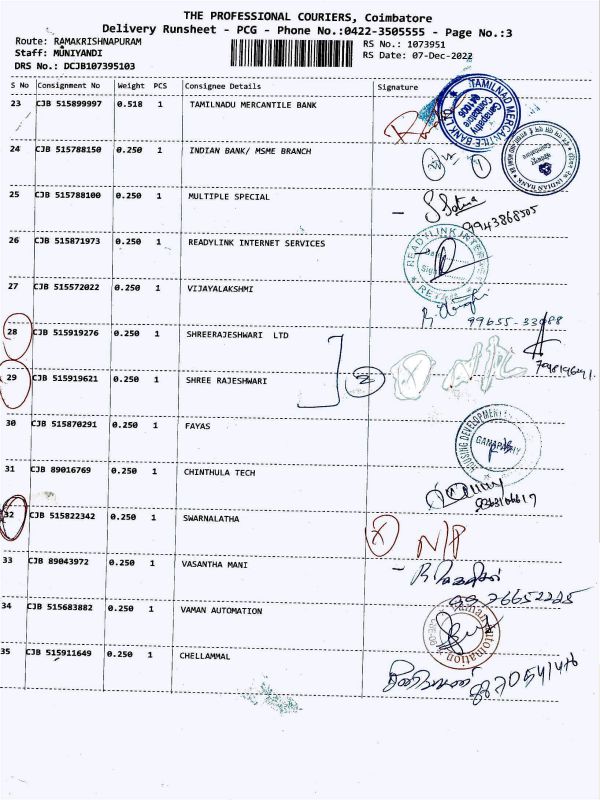 THE PROFESSIONAL COURIERS, Coimbatore
Delivery Runsheet - PCG - Phone No.:0422-3505555 - Page No.:3
Route: RAMAKRISHNAPURAM RS No.: 1073951
Staff: MUNIYANDI RS Date: 07-Dec-2022
DRS No.: DCJB107395103
S No Consignment No Weight PCS Consignee Details Signature
23 CJB 515899997 0.518 1 TAMILNADU MERCANTILE BANK
TAMILNAD MERCANTILE BANK LTD
Ganapathy
Coimbatore
641006
24 CJB 515788150 0.250 1 INDIAN BANK/ MSME BRANCH
INDIAN BANK
25 CJB 515788100 0.250 1 MULTIPLE SPECIAL
9943868505
26 CJB 515871973 0.250 1 READYLINK INTERNET SERVICES
READYLINK INTERNET
27 CJB 515572022 0.250 1 VIJAYALAKSHMI
99655-33088
28 CJB 515919276 0.250 1 SHREERAJESHWARI LTD
29 CJB 515919621 0.250 1 SHREE RAJESHWARI 2
30 CJB 515870291 0.250 1 FAYAS
HOUSING DEVELOPMENT
GANAPATHY
31 CJB 89016769 0.250 1 CHINTHULA TECH
32 CJB 515822342 0.250 1 SWARNALATHA N/P
33 CJB 89043972 0.250 1 VASANTHA MANI
34 CJB 515683882 0.250 1 VAMAN AUTOMATION
Vaman Automation
35 CJB 515911649 0.250 1 CHELLAMMAL